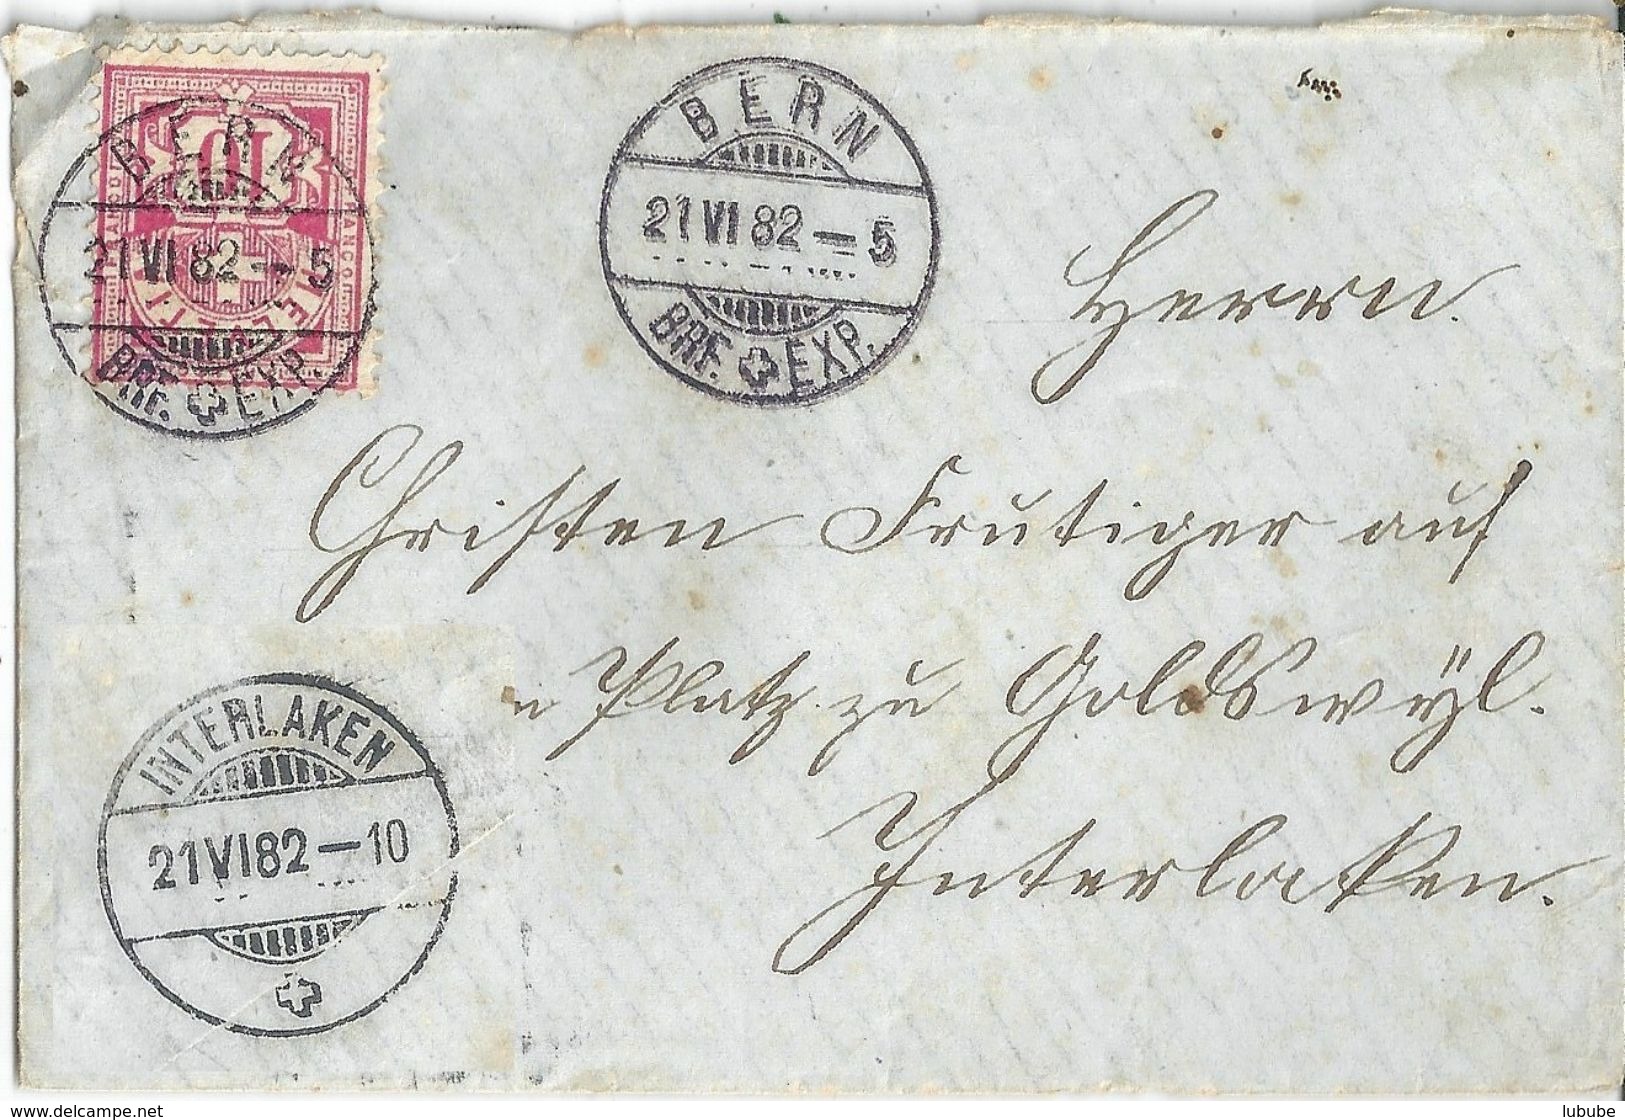 BERN
21 VI 82 – 5
BRF. EXP.
BERN
21 VI 82 – 5
BRF. EXP.
10
FRANCO
FRANCO
HELVETIA
Herrn.
Christen Frutiger auf
Platz zu Goldswÿl.
Interlaken.
INTERLAKEN
21 VI 82 – 10
www.delcampe.net
lubube